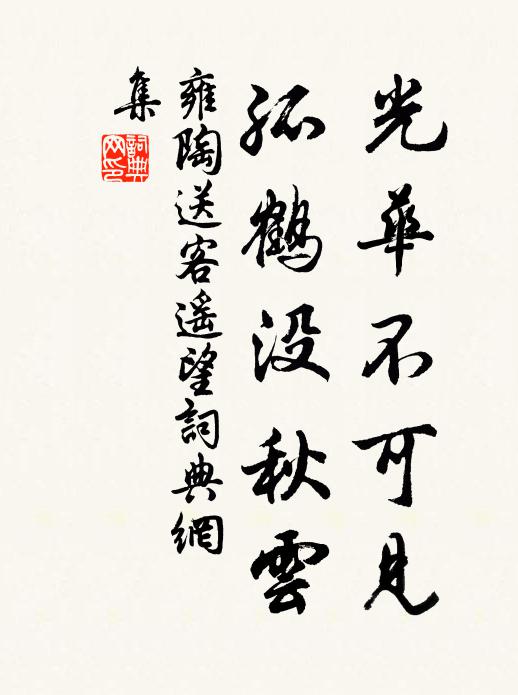 光華不可見
孤鶴没秋雲
雍陶送客遥望詞典網
集
詞典
网印